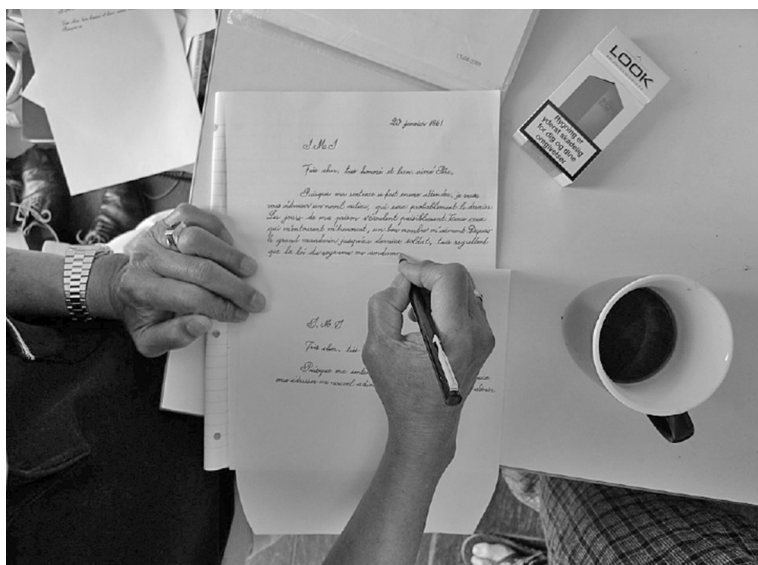 20 janvier 1861
J.M.J
Très cher, très honoré et bien-aimé Père,
Puisque ma sentence se fait encore attendre, je veux
vous adresser un nouvel adieu, qui sera probablement le dernier.
Les jours de ma prison s'écoulent paisiblement. Tous ceux
qui m'entourent m'honorent, un bon nombre m'aiment. Depuis
le grand mandarin jusqu'au dernier soldat, tous regrettent
que la loi du royaume me condamne
J.M.J
Très cher, très
Puisque ma
vous adresser un nouvel dernier.
LOOK
Rygning er
yderst skadelig
for dig og dine
omgivelser